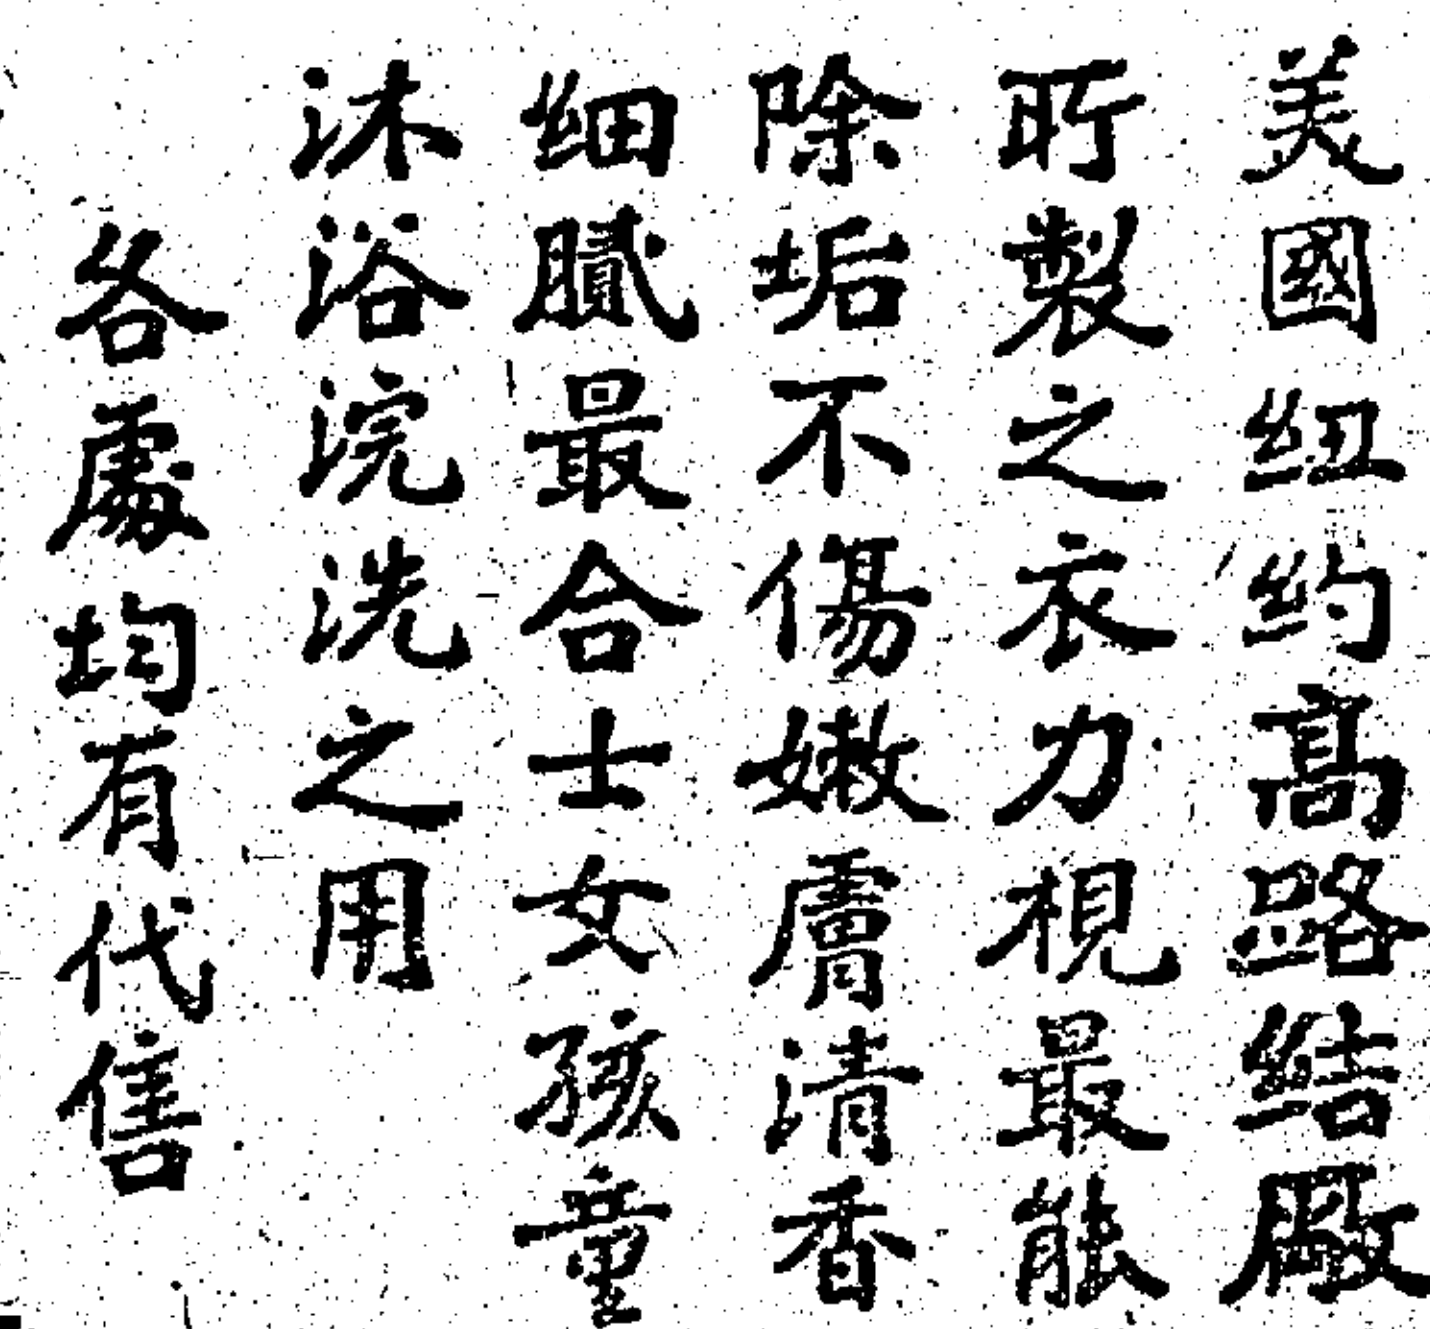 美國纽約髙路结廠
所製之衣力梘最能
除垢不傷嫩膚清香
细膩最合士女孩童
沐浴浣洗之用
各處均有代售